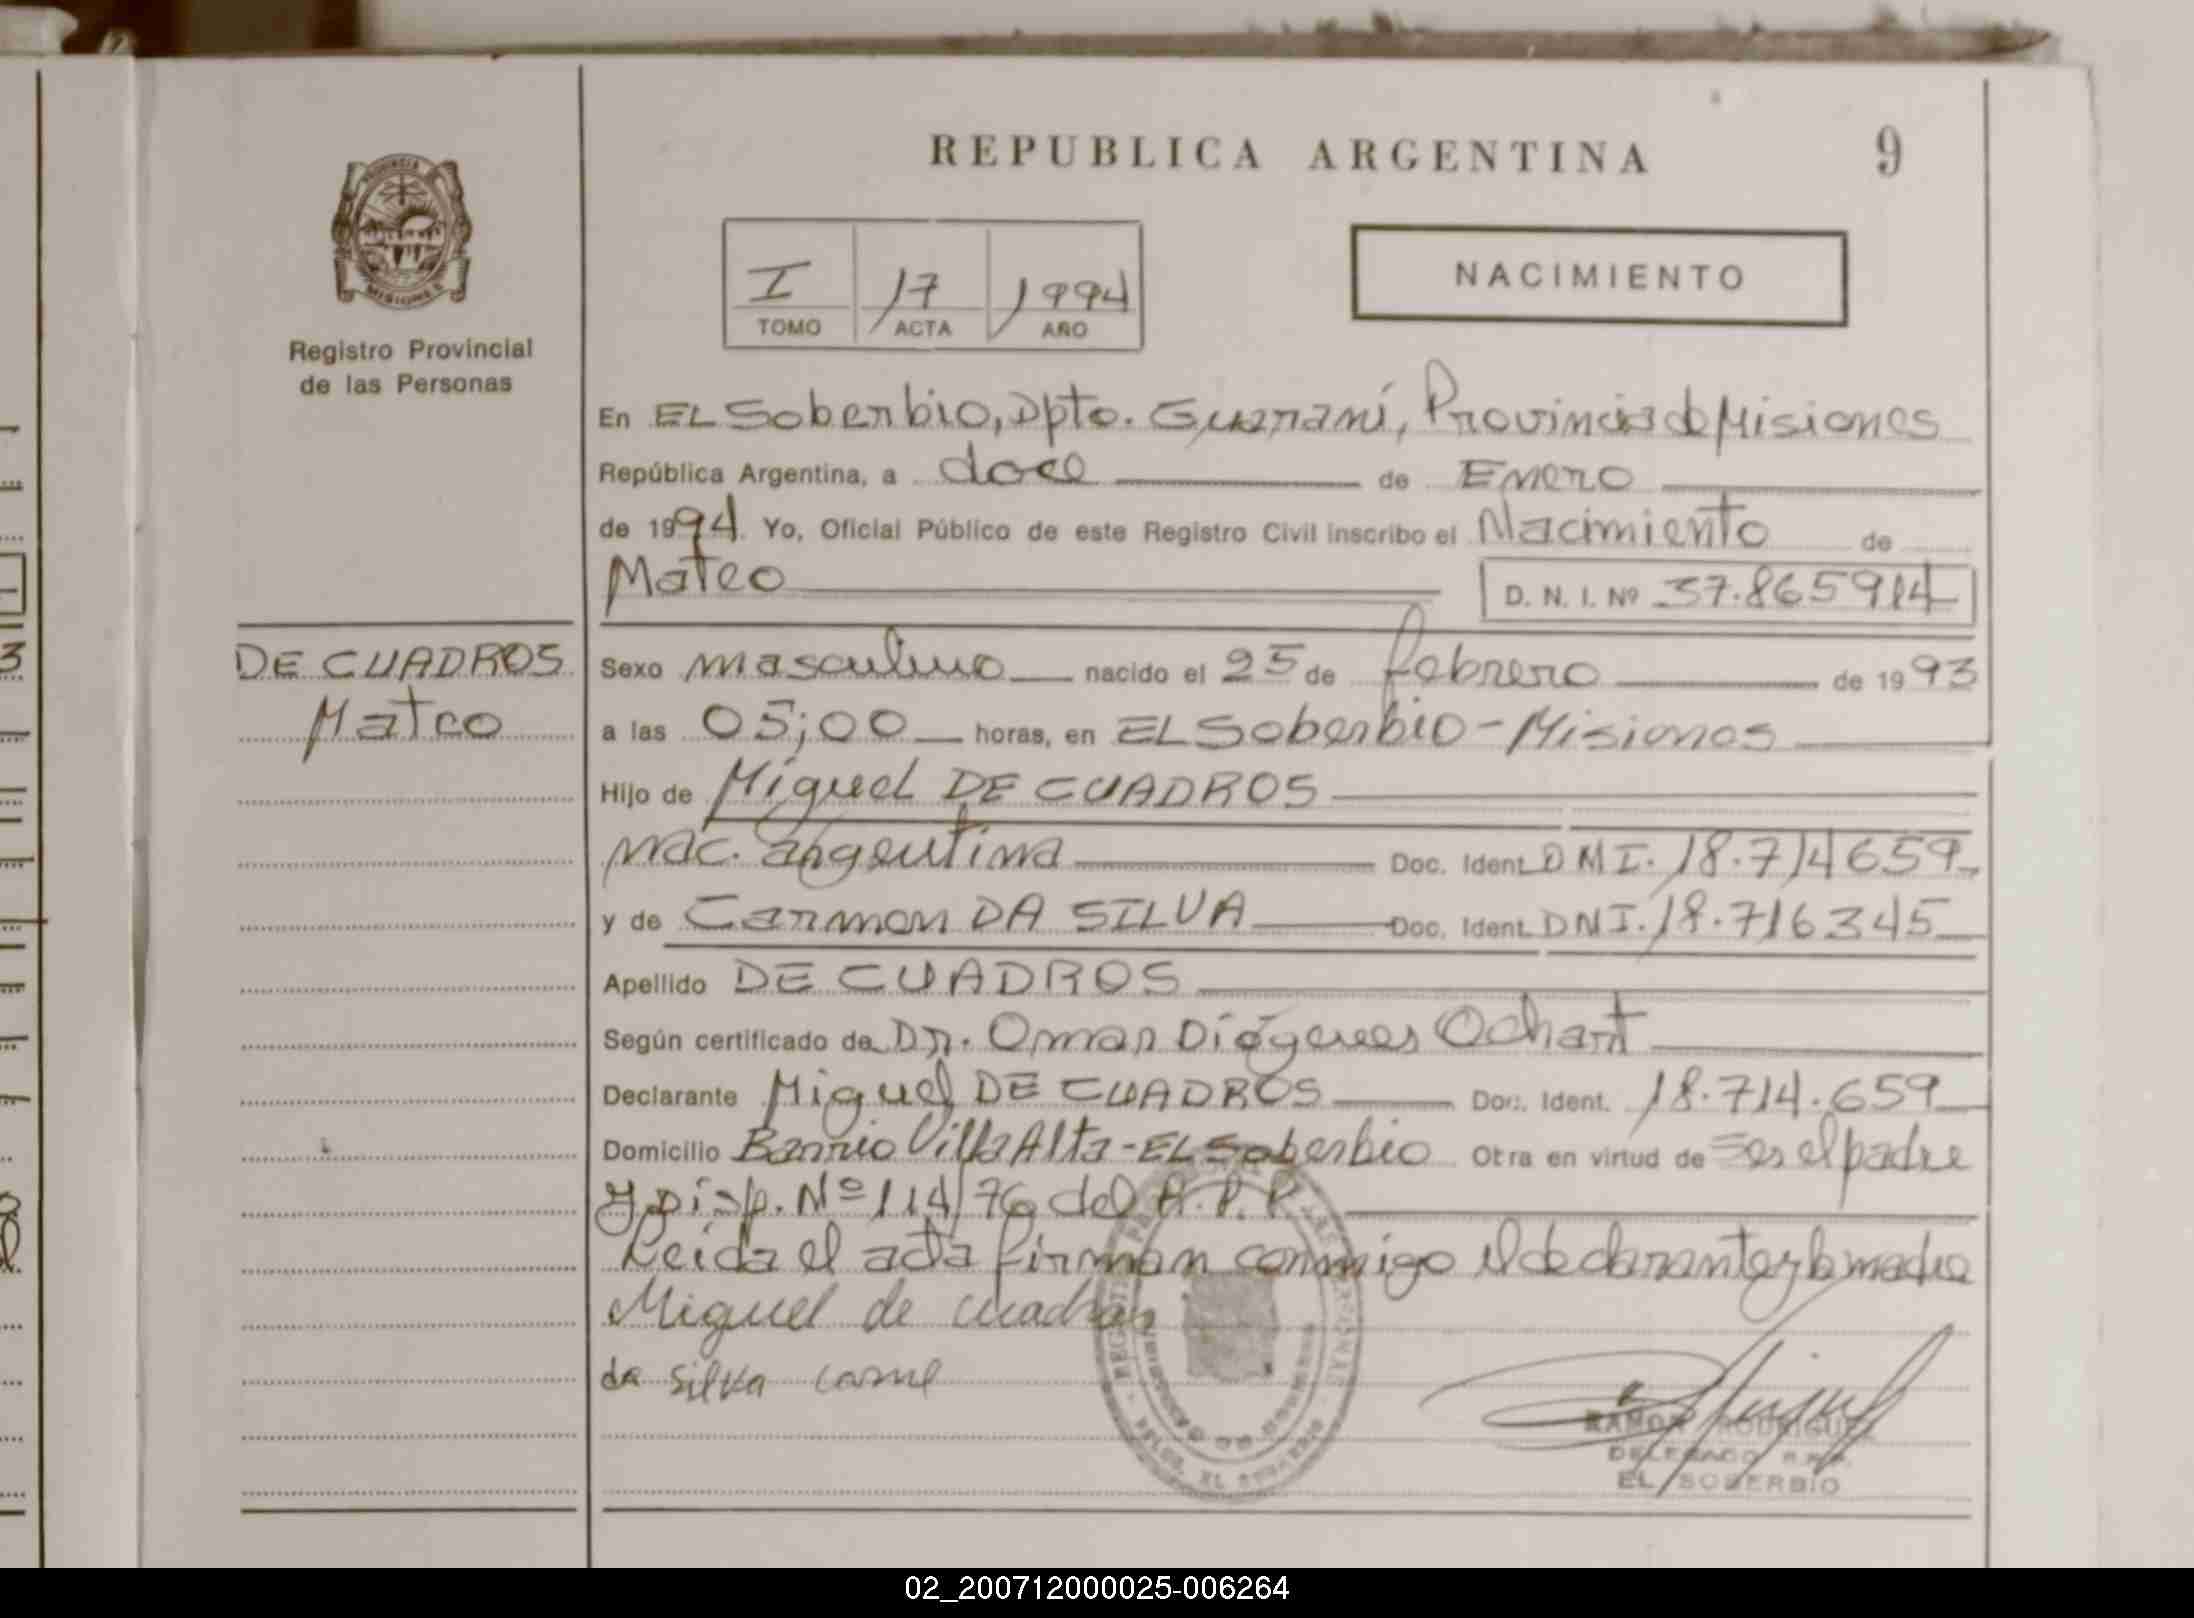 REPUBLICA ARGENTINA
9
PROVINCIA
MISIONES
Registro Provincial
de las Personas
I 17 1994
TOMO ACTA AÑO
NACIMIENTO
En EL Soberbio, Dpto. Guaraní, Provincia de Misiones
República Argentina, a doce de Enero
de 1994. Yo, Oficial Público de este Registro Civil inscribo el Nacimiento de
Mateo D. N. I. Nº 37.865914
DE CUADROS
Mateo
Sexo masculino nacido el 25 de febrero de 1993
a las 05;00 horas, en EL Soberbio - Misiones
Hijo de Miguel DE CUADROS
nac. argentina Doc. Ident. DNI. 18.714659
y de Carmen DA SILVA Doc. Ident. DNI. 18.716345
Apellido DE CUADROS
Según certificado de Dr. Omar Diógenes Ochart
Declarante Miguel DE CUADROS Doc. Ident. 18.714.659
Domicilio Barrio Villa Alta - EL Soberbio Otra en virtud de = es el padre
y Disp. Nº 114/76 del R.P.P.
Leida el acta firman conmigo el declarante y la madre
Miguel de cuadros
da silva
RAMON RODRIGUEZ
DELEGADO R.P.P.
EL SOBERBIO
02_200712000025-006264